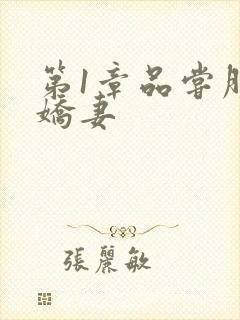 第1章品尝
娇妻
張麗敏